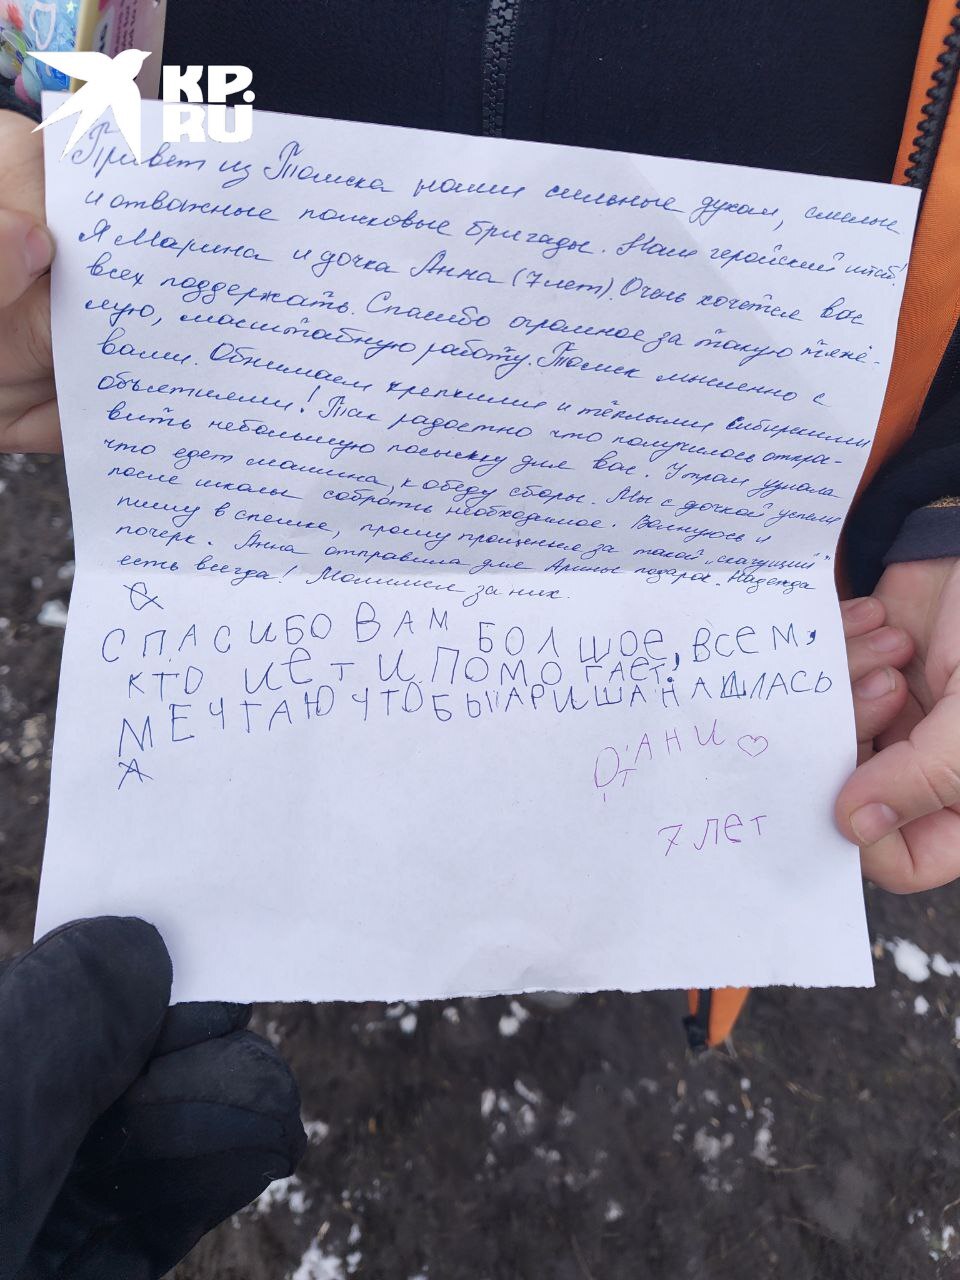 KP.
RU
Привет из Томска наши сильные духом, смелые
и отважные поисковые бригады. Наш геройский штаб!
Я Марина и дочка Анна (7 лет). Очень хочется вас
всех поддержать. Спасибо огромное за такую тяжё-
лую, масштабную работу. Томск мысленно с
вами. Обнимаем крепкими и тёплыми сибирскими
объятиями! Так радостно что получилось отпра-
вить небольшую посылку для вас. Утром узнала
что едет машина, к обеду сборы. Мы с дочкой успели
после школы собрать необходимое. Волнуюсь и
пишу в спешке, прошу прощения за такой „скачущий"
почерк. Анна отправила для Арины подарок. Надежда
есть всегда! Молимся за них.
СПАСИБО ВАМ БОЛШОЕ, ВСЕМ,
КТО ИЕТ И ПОМОГАЕТ,
МЕЧТАЮ ЧТОБЫ АРИША НАШЛАСЬ
ОТ АНИ
7 ЛЕТ